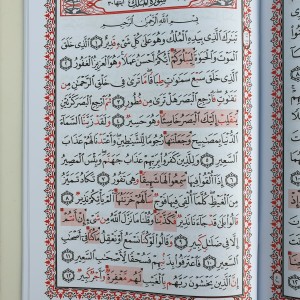 سُورَةُ المُلْكِ آياتها ٣٠
بِسْمِ اللَّهِ الرَّحْمَٰنِ الرَّحِيمِ
تَبَٰرَكَ الَّذِي بِيَدِهِ الْمُلْكُ وَهُوَ عَلَىٰ كُلِّ شَيْءٍ قَدِيرٌ ١ الَّذِي خَلَقَ
الْمَوْتَ وَالْحَيَوٰةَ لِيَبْلُوَكُمْ أَيُّكُمْ أَحْسَنُ عَمَلًا وَهُوَ الْعَزِيزُ الْغَفُورُ ٢
الَّذِي خَلَقَ سَبْعَ سَمَٰوَٰتٍ طِبَاقًا مَّا تَرَىٰ فِي خَلْقِ الرَّحْمَٰنِ مِن
تَفَٰوُتٍ فَارْجِعِ الْبَصَرَ هَلْ تَرَىٰ مِن فُطُورٍ ٣ ثُمَّ ارْجِعِ الْبَصَرَ كَرَّتَيْنِ
يَنقَلِبْ إِلَيْكَ الْبَصَرُ خَاسِئًا وَهُوَ حَسِيرٌ ٤ وَلَقَدْ زَيَّنَّا السَّمَاءَ
الدُّنْيَا بِمَصَٰبِيحَ وَجَعَلْنَٰهَا رُجُومًا لِّلشَّيَٰطِينِ وَأَعْتَدْنَا لَهُمْ عَذَابَ
السَّعِيرِ ٥ وَلِلَّذِينَ كَفَرُوا بِرَبِّهِمْ عَذَابُ جَهَنَّمَ وَبِئْسَ الْمَصِيرُ
٦ إِذَا أُلْقُوا فِيهَا سَمِعُوا لَهَا شَهِيقًا وَهِيَ تَفُورُ ٧ تَكَادُ تَمَيَّزُ
مِنَ الْغَيْظِ كُلَّمَا أُلْقِيَ فِيهَا فَوْجٌ سَأَلَهُمْ خَزَنَتُهَا أَلَمْ يَأْتِكُمْ نَذِيرٌ ٨
قَالُوا بَلَىٰ قَدْ جَاءَنَا نَذِيرٌ فَكَذَّبْنَا وَقُلْنَا مَا نَزَّلَ اللَّهُ مِن شَيْءٍ إِنْ أَنتُمْ
إِلَّا فِي ضَلَٰلٍ كَبِيرٍ ٩ وَقَالُوا لَوْ كُنَّا نَسْمَعُ أَوْ نَعْقِلُ مَا كُنَّا فِي أَصْحَٰبِ
السَّعِيرِ ١٠ فَاعْتَرَفُوا بِذَنبِهِمْ فَسُحْقًا لِّأَصْحَٰبِ السَّعِيرِ ١١
إِنَّ الَّذِينَ يَخْشَوْنَ رَبَّهُم بِالْغَيْبِ لَهُم مَّغْفِرَةٌ وَأَجْرٌ كَبِيرٌ ١٢